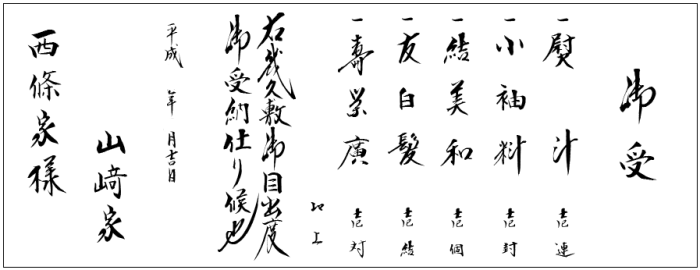 御受
一 熨汁 壱連
一 小袖料 壱封
一 結美和 壱個
一 友白髪 壱結
一 寿栄廣 壱対
以上
右幾久敷御目出度
御受納仕り候也
平成 年 月吉日
山﨑家
西條家様